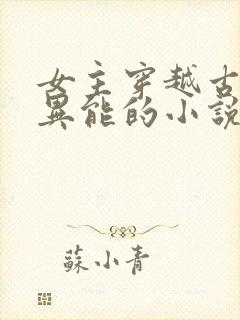 女主穿越古
異能的小説
蘇小青